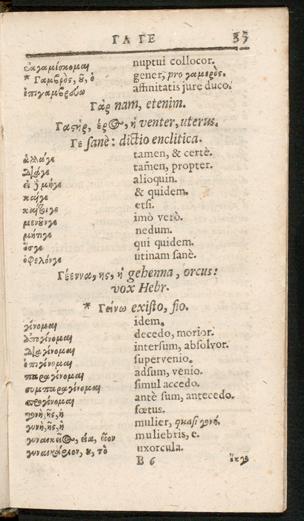 ΓΑ ΓΕ 35
ἐκγαμίσκομαι nuptui collocor.
* Γαμβρὸς, οῦ, ὁ gener, pro γαμερός.
ἐπιγαμβρεύω affinitatis jure duco.
Γὰρ nam, etenim.
Γαστὴρ, έρος, ἡ venter, uterus.
Γε sanè: dictio enclitica.
ἀλλάγε tamen, & certè.
διάγε tamen, propter.
εἰ δὲ μήγε alioquin.
καίγε & quidem.
καίτοιγε etsi.
μενοῦνγε imò verò.
μήτιγε nedum.
ὅσγε qui quidem.
ὀφελόνγε utinam sanè.
Γέεννα, ης, ἡ gehenna, orcus:
vox Hebr.
* Γείνω existo, fio.
γίνομαι idem.
ἀπογίνομαι decedo, morior.
διαγίνομαι intersum, absolvor.
ἐπιγίνομαι supervenio.
παραγίνομαι adsum, venio.
συμπαραγίνομαι simul accedo.
προγίνομαι antè sum, antecedo.
γονὴ, ῆς, ἡ fœtus.
γυνὴ, ῆς, ἡ mulier, quasi γονή.
γυναικεῖος, εία, εῖον muliebris, e.
γυναικάριον, ου, τὸ uxorcula.
B 6